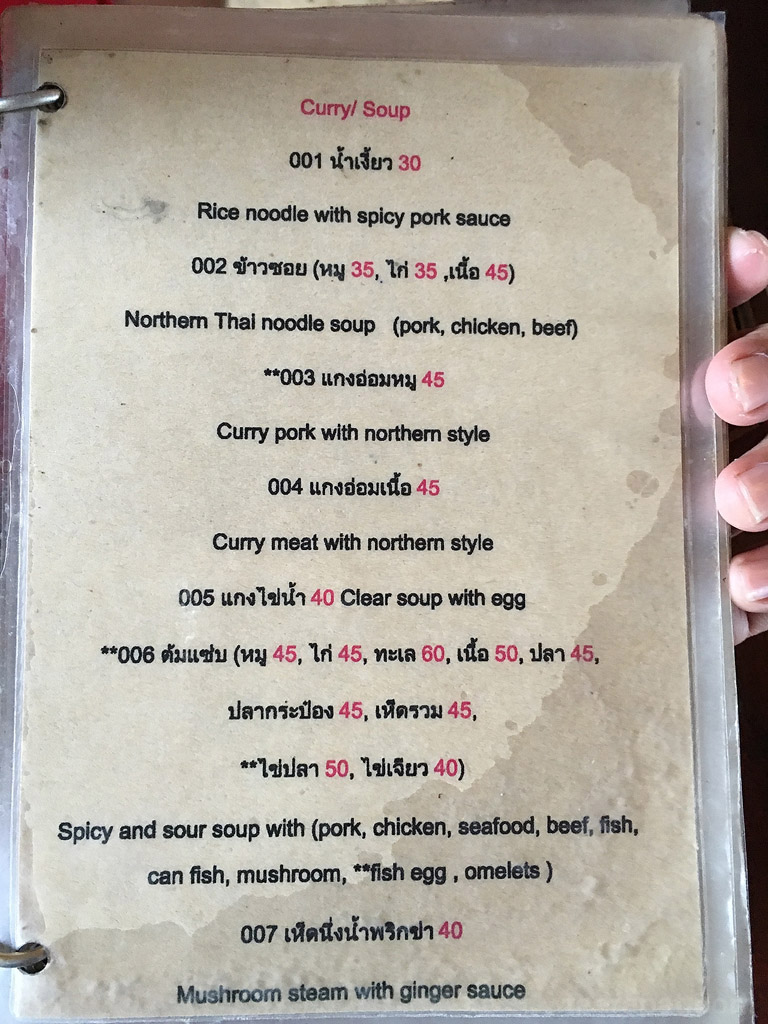 Curry/ Soup
001 น้ำเงี้ยว 30
Rice noodle with spicy pork sauce
002 ข้าวซอย (หมู 35, ไก่ 35 ,เนื้อ 45)
Northern Thai noodle soup (pork, chicken, beef)
**003 แกงอ่อมหมู 45
Curry pork with northern style
004 แกงอ่อมเนื้อ 45
Curry meat with northern style
005 แกงไข่น้ำ 40 Clear soup with egg
**006 ต้มแซ่บ (หมู 45, ไก่ 45, ทะเล 60, เนื้อ 50, ปลา 45,
ปลากระป๋อง 45, เห็ดรวม 45,
**ไข่ปลา 50, ไข่เจียว 40)
Spicy and sour soup with (pork, chicken, seafood, beef, fish,
can fish, mushroom, **fish egg , omelets )
007 เห็ดนึ่งน้ำพริกข่า 40
Mushroom steam with ginger sauce